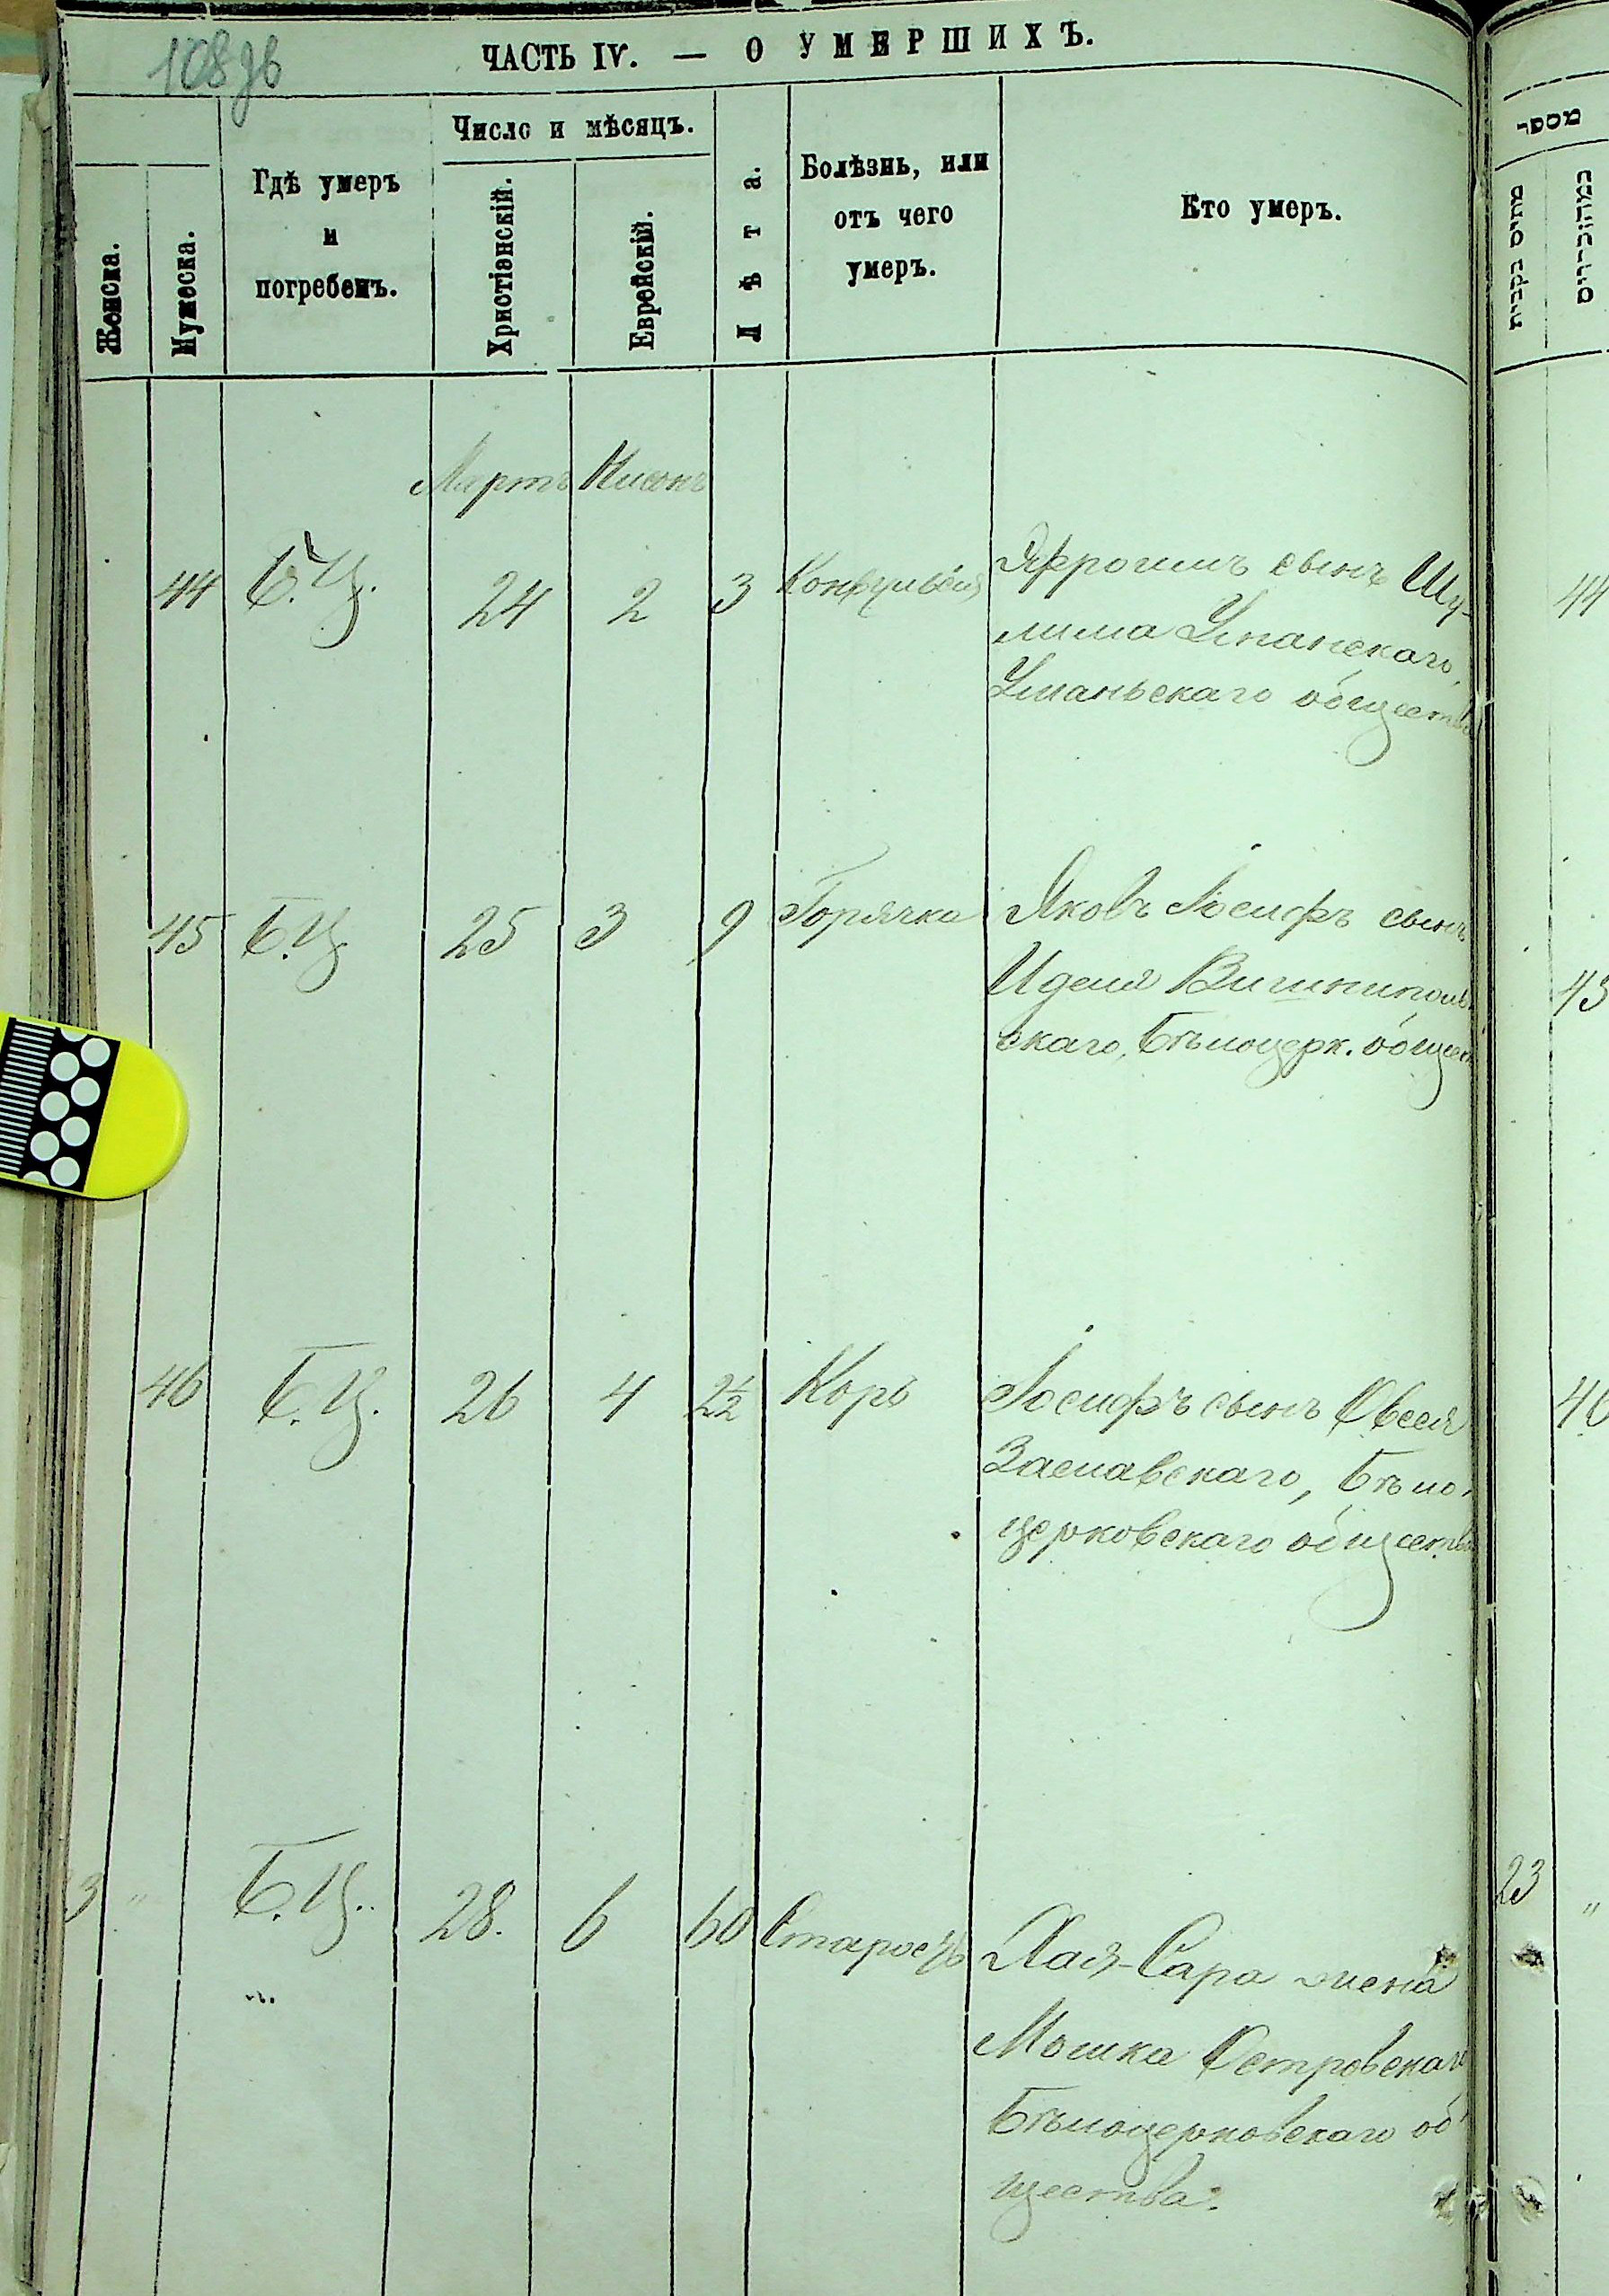 108 зв
ЧАСТЬ IV. — О УМЕРШИХЪ.
Женска.
Мужеска.
Гдѣ умеръ
и
погребенъ.
Число и мѣсяцъ.
Христіанскій.
Еврейскій.
Лѣта.
Болѣзнь, или
отъ чего
умеръ.
Кто умеръ.
Мартъ Нисонъ
44 Б.Ц. 24 2 3 Конвульсія сынъ Шу-
лима Уманскаго,
Уманьскаго общества
45 Б.Ц. 25 3 9 Горячка Яковъ Іосифъ сынъ
Иделя Вишниполь
скаго, Бѣлоцерк. общест
46 Б.Ц. 26 4 2½ Корь Іосифъ сынъ Овсея
Заславскаго, Бѣло-
церковскаго общества
3 " Б.Ц. 28. 6 60 Старость Хая-Сара жена
Мошка Островскаго
Бѣлоцерковскаго об
щества.
מספר
44
45
46
23 "